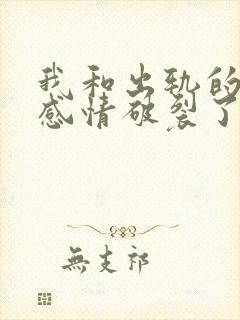 我和出轨的
感情破裂了
無支祁